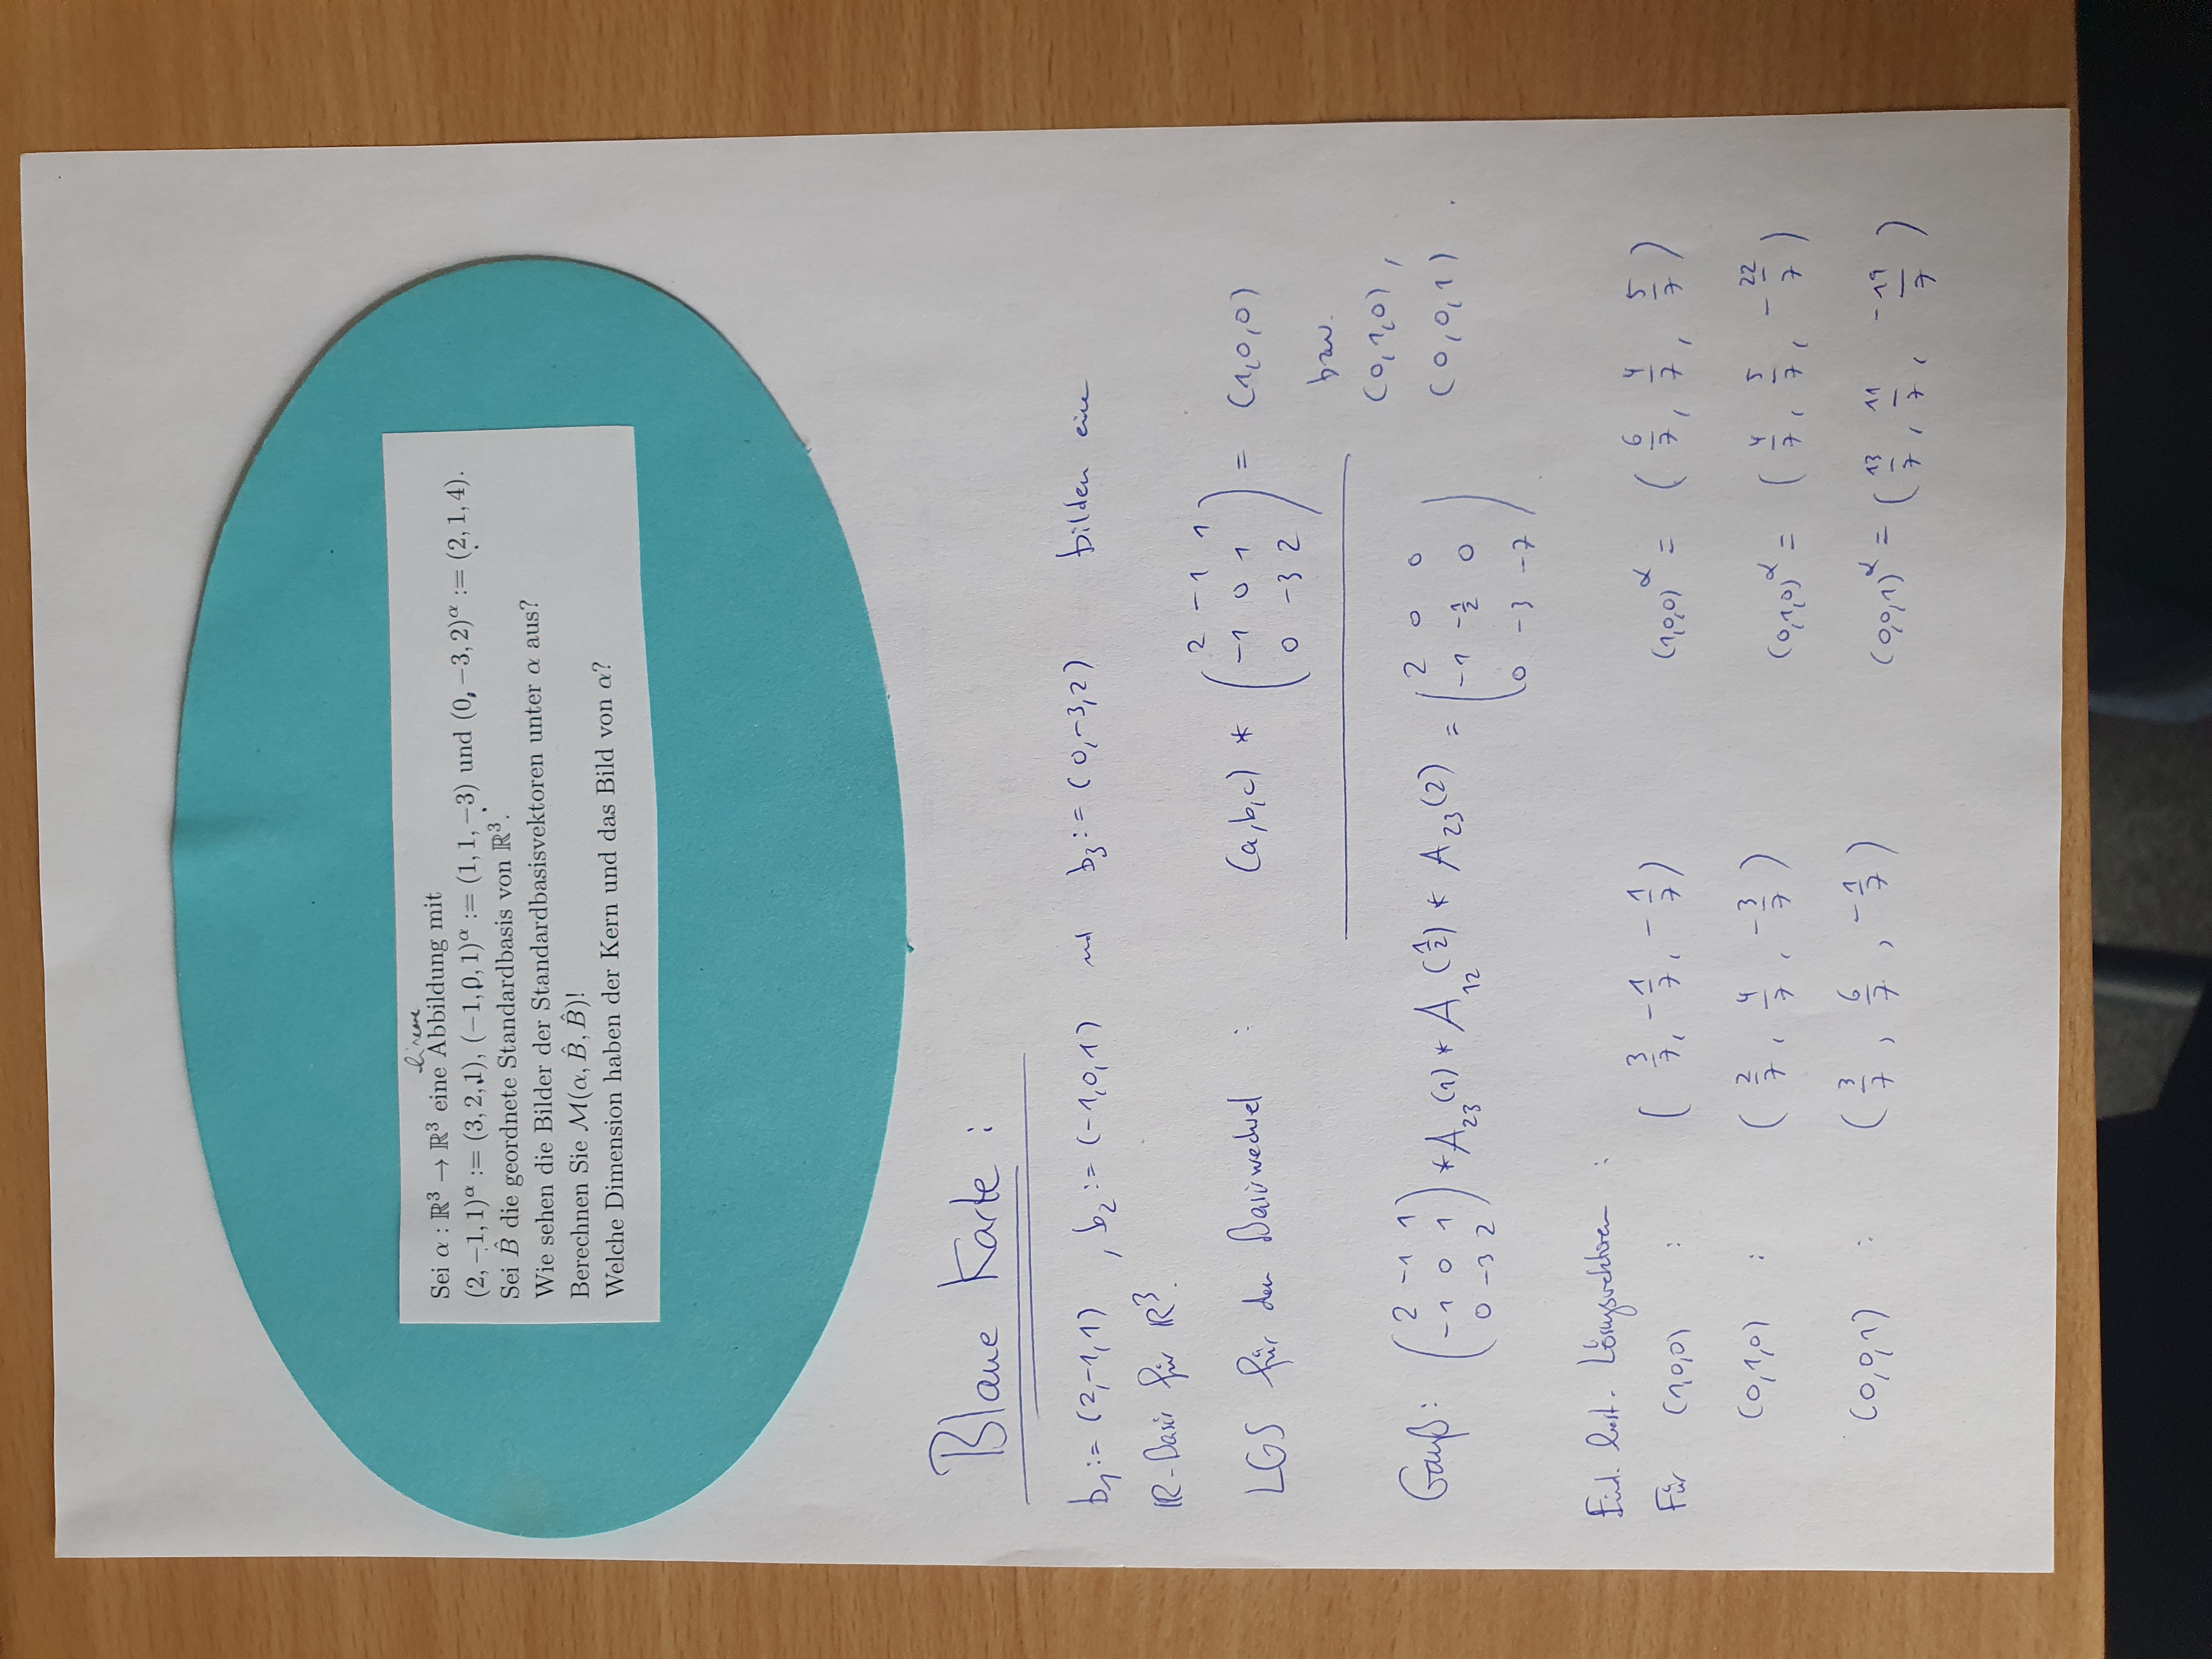 Sei α : ℝ³ → ℝ³ eine lineare Abbildung mit
(2, −1, 1)^α := (3, 2, 1), (−1, 0, 1)^α := (1, 1, −3) und (0, −3, 2)^α := (2, 1, 4).
Sei B̂ die geordnete Standardbasis von ℝ³.
Wie sehen die Bilder der Standardbasisvektoren unter α aus?
Berechnen Sie M(α, B̂, B̂)!
Welche Dimension haben der Kern und das Bild von α?
Blaue Karte:
b₁ := (2,−1,1) , b₂ := (−1,0,1) und b₃ := (0,−3,2) bilden eine
ℝ-Basis für ℝ³.
LGS für den Basiswechsel : (a,b,c) * ( 2 −1 1 ; −1 0 1 ; 0 −3 2 ) = (1,0,0)
bzw.
(0,1,0) ,
(0,0,1) .
Gauß: ( 2 −1 1 ; −1 0 1 ; 0 −3 2 ) * A₂₃(1) * A₁₂(1/2) * A₂₃(2) = ( 2 0 0 ; −1 −1/2 0 ; 0 −3 −7 )
Eind. best. Lösungsvektoren :
Für (1,0,0) : ( 3/7 , −1/7 , −1/7 ) (1,0,0)^α = ( 6/7 , 4/7 , 5/7 )
(0,1,0) : ( 2/7 , 4/7 , −3/7 ) (0,1,0)^α = ( 4/7 , 5/7 , −22/7 )
(0,0,1) : ( 3/7 , 6/7 , −1/7 ) (0,0,1)^α = ( 13/7 , 11/7 , −19/7 )